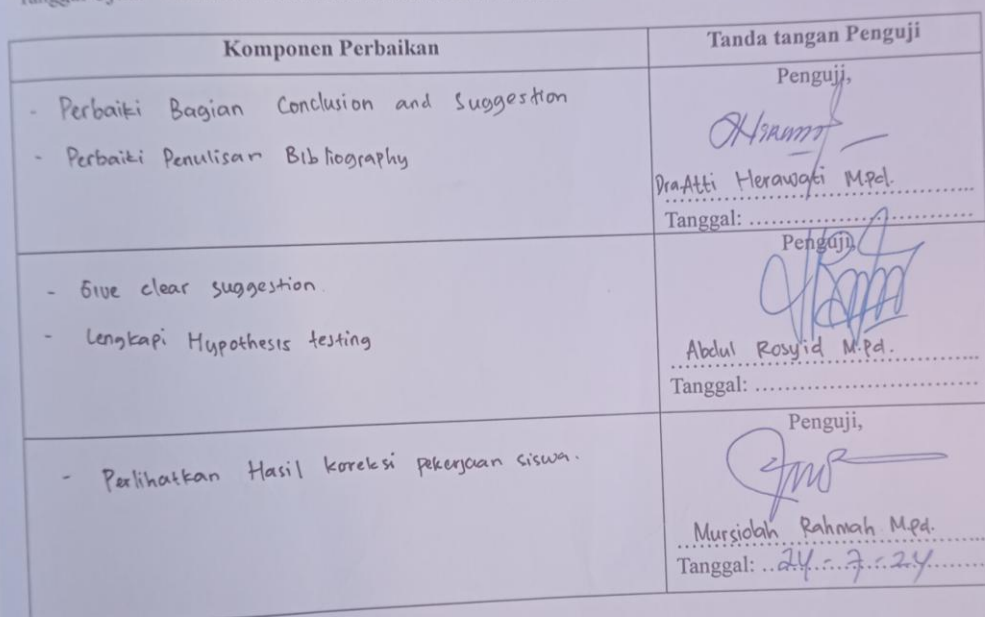 Komponen Perbaikan
Tanda tangan Penguji
- Perbaiki Bagian Conclusion and Suggestion
- Perbaiki Penulisan Bibliography
Penguji,
Dra.Atti Herawati M.Pd.
Tanggal:
- Give clear suggestion
- Lengkapi Hypothesis testing
Penguji,
Abdul Rosyid M.Pd.
Tanggal:
- Perlihatkan Hasil koreksi pekerjaan siswa.
Penguji,
Mursidah Rahmah M.Pd.
Tanggal: 24-7-24